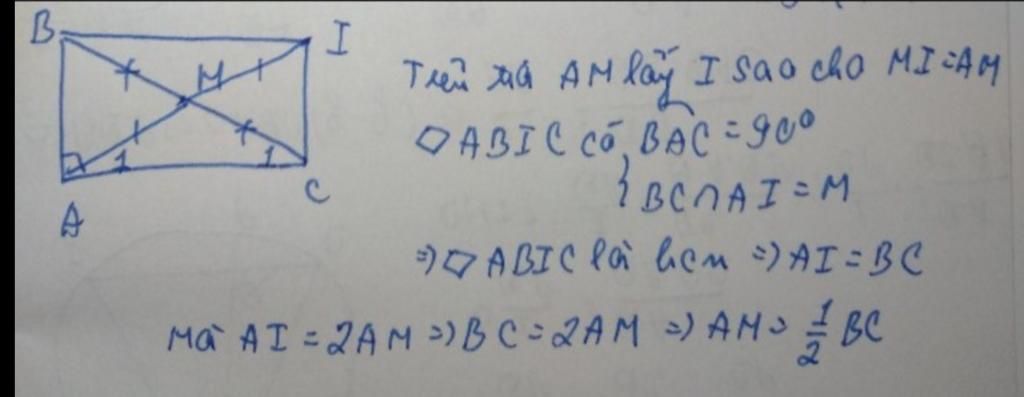 B
I
M
1
1
A
C
Trên tia AM lấy I sao cho MI = AM
▱ABIC có { BAC = 90°
BC ∩ AI = M
⇒ ▱ABIC là hcn ⇒ AI = BC
Mà AI = 2AM ⇒ BC = 2AM ⇒ AM = 1/2 BC